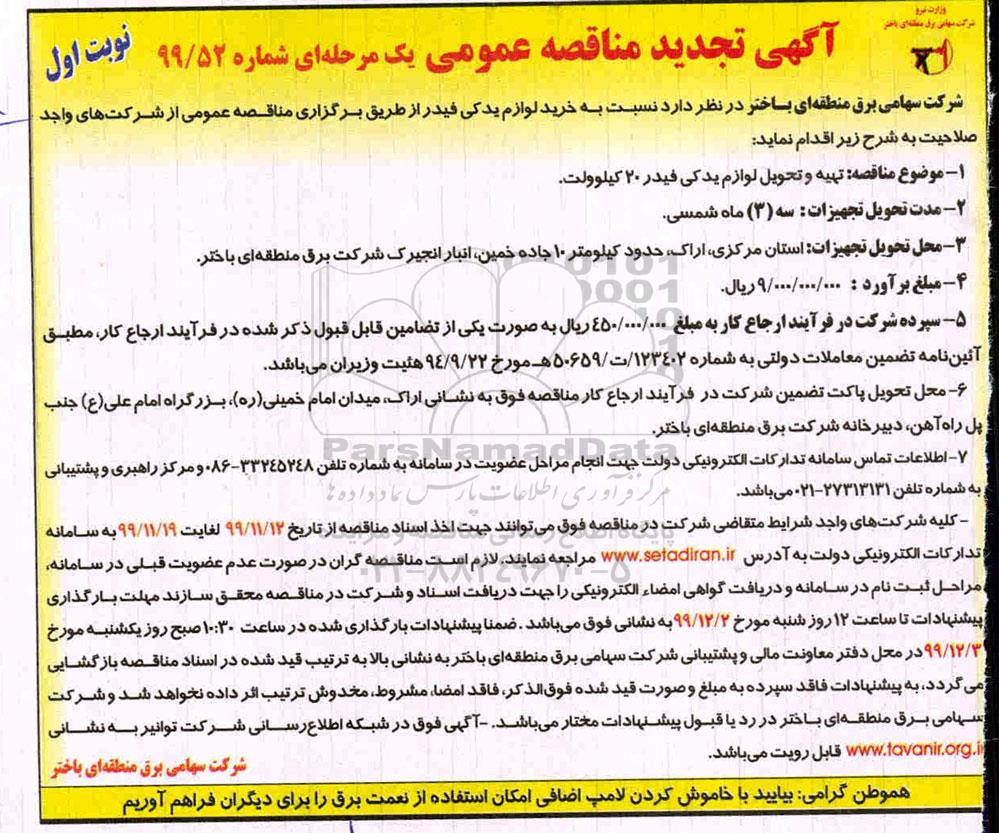 وزارت نیرو
شرکت سهامی برق منطقه‌ای باختر
آگهی تجدید مناقصه عمومی یک مرحله‌ای شماره ۹۹/۵۲
نوبت اول
شرکت سهامی برق منطقه‌ای باختر در نظر دارد نسبت به خرید لوازم یدکی فیدر از طریق برگزاری مناقصه عمومی از شرکت‌های واجد
صلاحیت به شرح زیر اقدام نماید:
۱- موضوع مناقصه: تهیه و تحویل لوازم یدکی فیدر ۲۰ کیلوولت.
۲- مدت تحویل تجهیزات: سه (۳) ماه شمسی.
۳- محل تحویل تجهیزات: استان مرکزی، اراک، حدود کیلومتر ۱۰ جاده خمین، انبار انجیرک شرکت برق منطقه‌ای باختر.
۴- مبلغ برآورد : ۹/۰۰۰/۰۰۰/۰۰۰ ریال.
۵- سپرده شرکت در فرآیند ارجاع کار به مبلغ ۴۵۰/۰۰۰/۰۰۰ ریال به صورت یکی از تضامین قابل قبول ذکر شده در فرآیند ارجاع کار، مطابق
آئین‌نامه تضمین معاملات دولتی به شماره ۱۲۳۴۰۲/ت/۵۰۶۵۹هـ مورخ ۹۴/۹/۲۲ هئیت وزیران می‌باشد.
۶- محل تحویل پاکت تضمین شرکت در فرآیند ارجاع کار مناقصه فوق به نشانی اراک، میدان امام خمینی(ره)، بزرگراه امام علی(ع) جنب
پل راه‌آهن، دبیرخانه شرکت برق منطقه‌ای باختر.
ParsNamadData
۷- اطلاعات تماس سامانه تدارکات الکترونیکی دولت جهت انجام مراحل عضویت در سامانه به شماره تلفن ۳۳۲۴۵۲۴۸-۰۸۶ و مرکز راهبری و پشتیبانی
به شماره تلفن ۲۷۳۱۳۱۳۱-۰۲۱ می‌باشد.
مرکز فرآوری اطلاعات پارس نماد داده‌ها
- کلیه شرکت‌های واجد شرایط متقاضی شرکت در مناقصه فوق می‌توانند جهت اخذ اسناد مناقصه از تاریخ ۹۹/۱۱/۱۲ لغایت ۹۹/۱۱/۱۹ به سامانه
تدارکات الکترونیکی دولت به آدرس www.setadiran.ir مراجعه نمایند. لازم است مناقصه گران در صورت عدم عضویت قبلی در سامانه،
۰۲۱-۸۸۳۴۹۶۷۰-۵
مراحل ثبت نام در سامانه و دریافت گواهی امضاء الکترونیکی را جهت دریافت اسناد و شرکت در مناقصه محقق سازند مهلت بارگذاری
پیشنهادات تا ساعت ۱۲ روز شنبه مورخ ۹۹/۱۲/۲ به نشانی فوق می‌باشد . ضمنا پیشنهادات بارگذاری شده در ساعت ۱۰:۳۰ صبح روز یکشنبه مورخ
۹۹/۱۲/۳ در محل دفتر معاونت مالی و پشتیبانی شرکت سهامی برق منطقه‌ای باختر به نشانی بالا به ترتیب قید شده در اسناد مناقصه بازگشایی
می‌گردد، به پیشنهادات فاقد سپرده به مبلغ و صورت قید شده فوق‌الذکر، فاقد امضا، مشروط، مخدوش ترتیب اثر داده نخواهد شد و شرکت
سهامی برق منطقه‌ای باختر در رد یا قبول پیشنهادات مختار می‌باشد. -آگهی فوق در شبکه اطلاع‌رسانی شرکت توانیر به نشانی
www.tavanir.org.ir قابل رویت می‌باشد.
شرکت سهامی برق منطقه‌ای باختر
هموطن گرامی: بیایید با خاموش کردن لامپ اضافی امکان استفاده از نعمت برق را برای دیگران فراهم آوریم